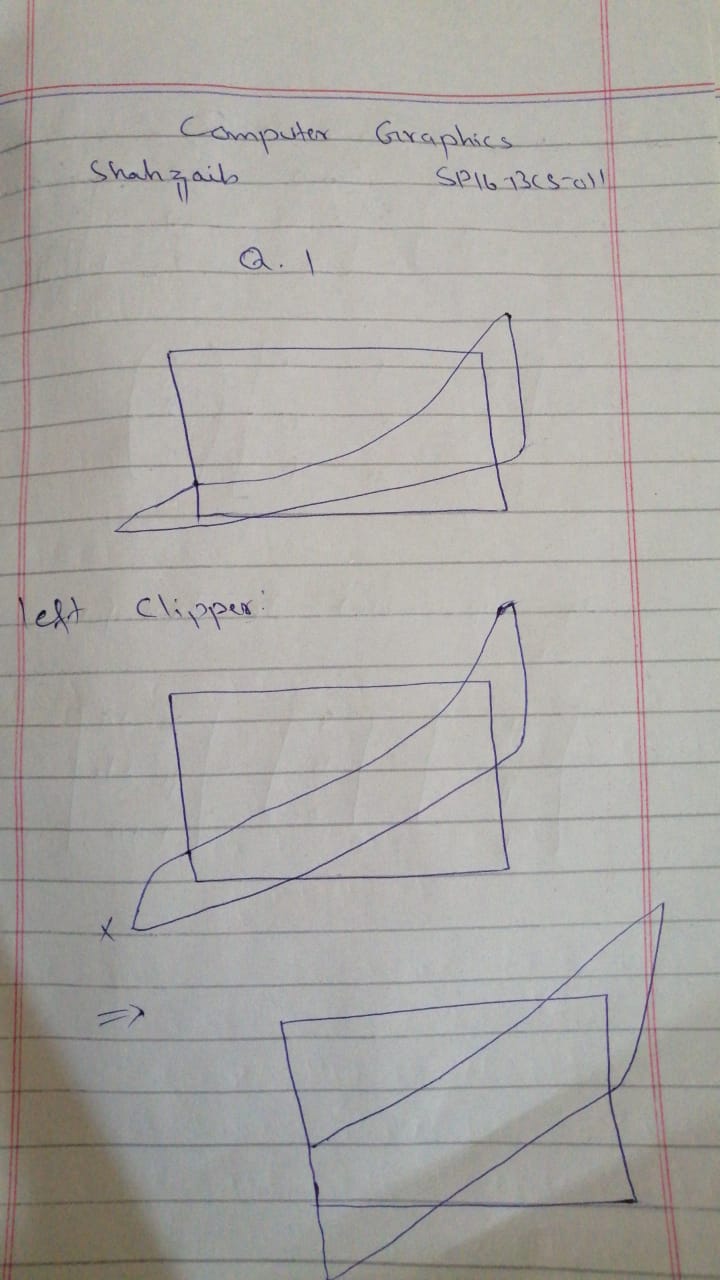 Computer Graphics
Shahzaib SP16-BCS-011
Q. 1
left Clipper:
x
⇒